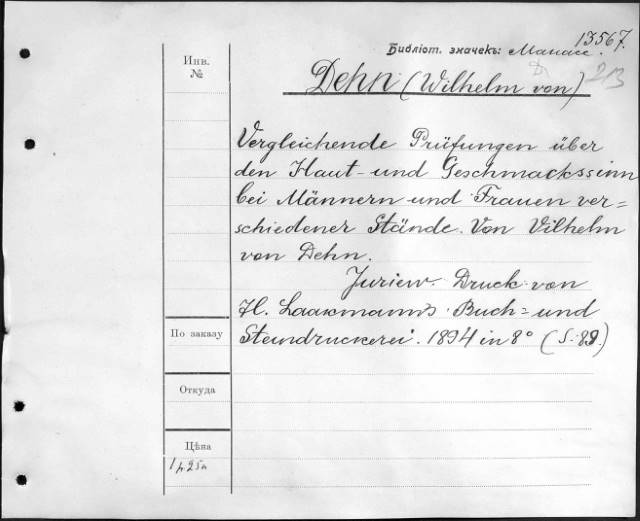 13567.
Библіот. значекъ: Манасс.
Инв.
№
Dehn (Wilhelm von)
213
Vergleichende Prüfungen über
den Haut- und Geschmackssinn
bei Männern und Frauen ver=
schiedener Stände. Von Vilhelm
von Dehn.
Juriew. Druck von
H. Laakmann's Buch= und
Steindruckerei. 1894 in 8° (S. 89.)
По заказу
Откуда
Цѣна